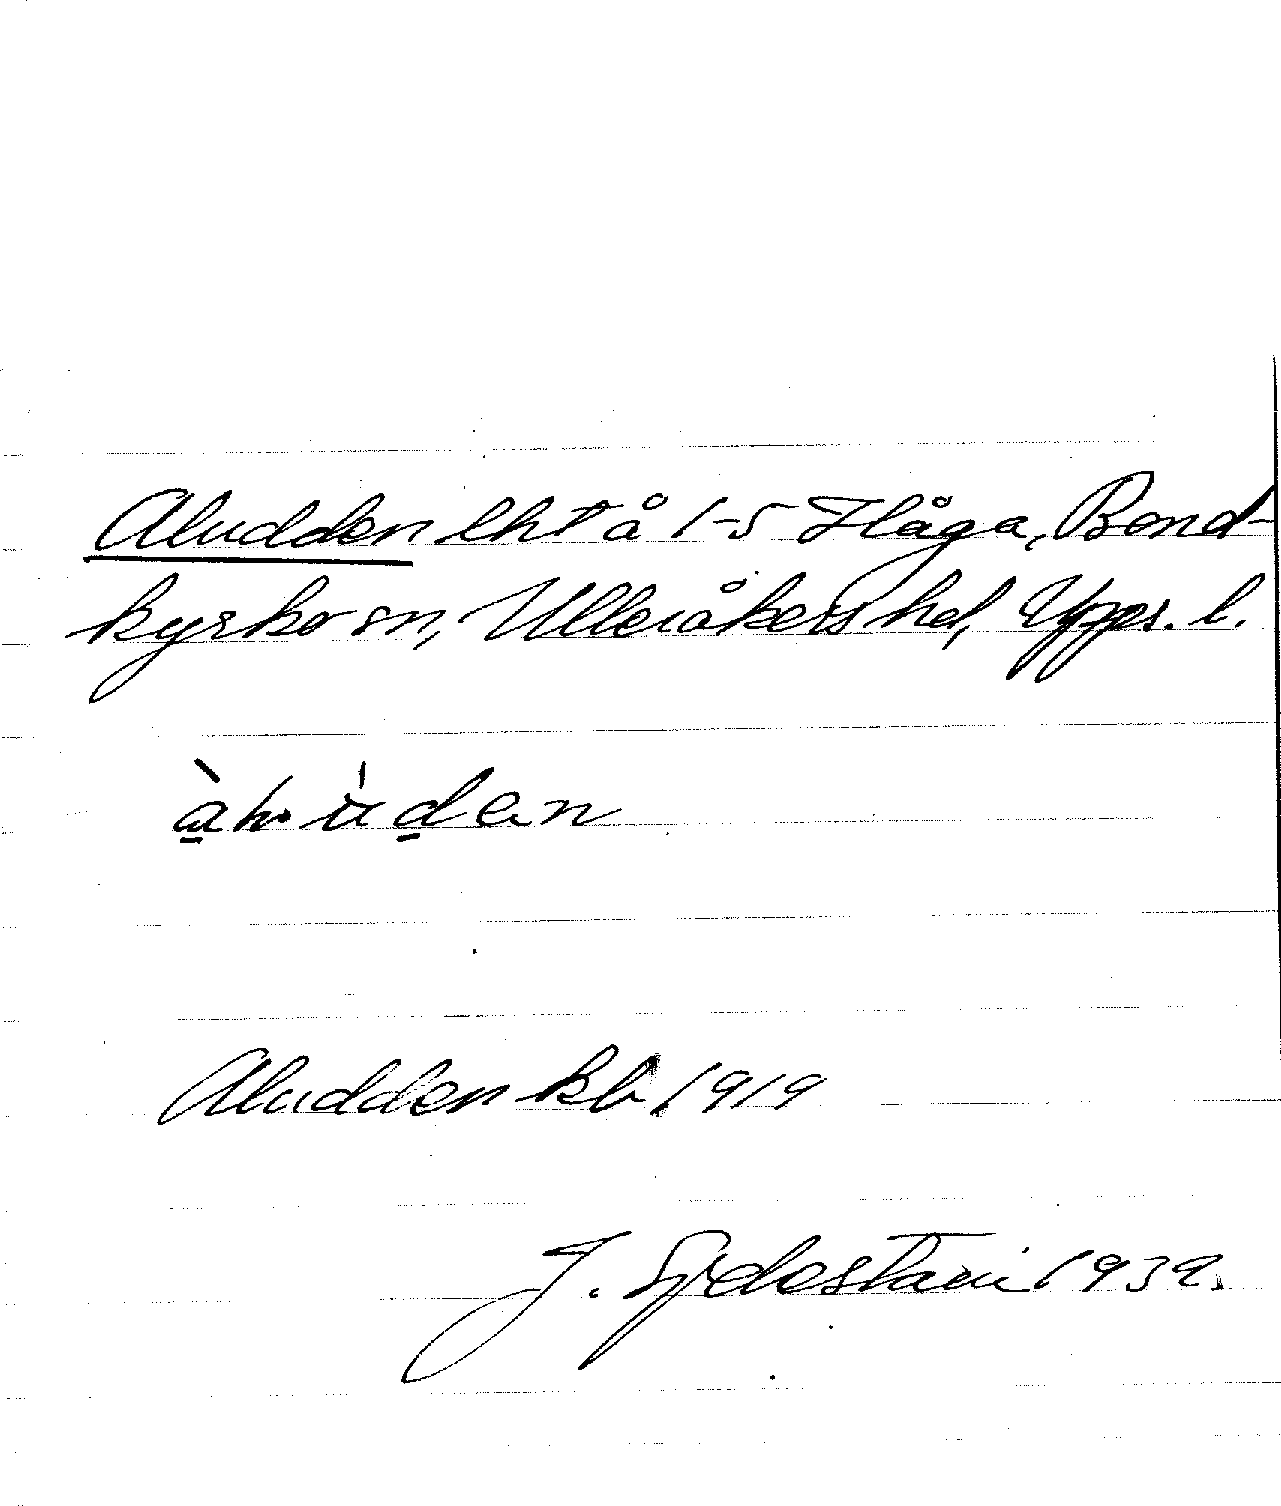 Aludden lht å 1-5 Håga, Bond-
kyrko sn, Ulleråkers hd, Upps. l.
Aludden kb 1919
J. Sjdestam 1939.